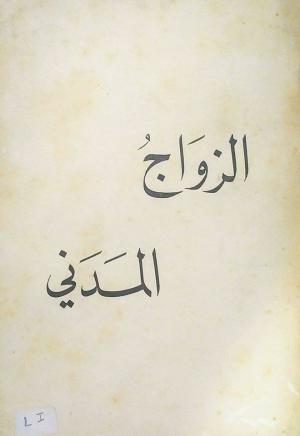 الزوَاجُ
المَدَني
L I